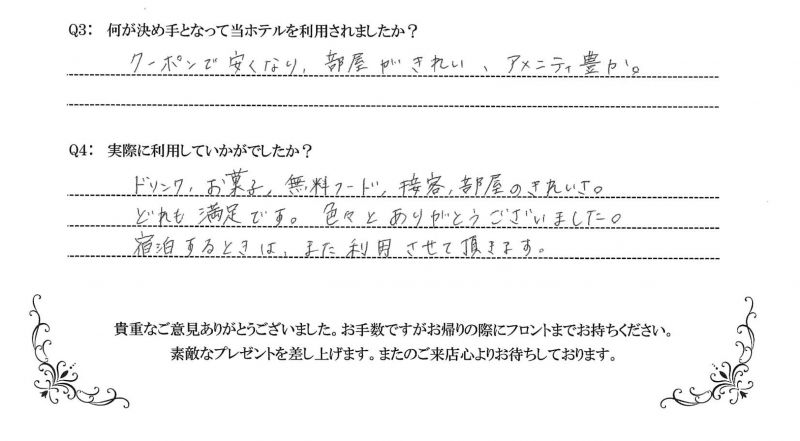 Q3: 何が決め手となって当ホテルを利用されましたか？
クーポンで安くなり、部屋がきれい、アメニティ豊か。
Q4: 実際に利用していかがでしたか？
ドリンク、お菓子、無料フード、接客、部屋のきれいさ。
どれも満足です。色々とありがとうございました。
宿泊するときは、また利用させて頂きます。
貴重なご意見ありがとうございました。お手数ですがお帰りの際にフロントまでお持ちください。
素敵なプレゼントを差し上げます。またのご来店心よりお待ちしております。